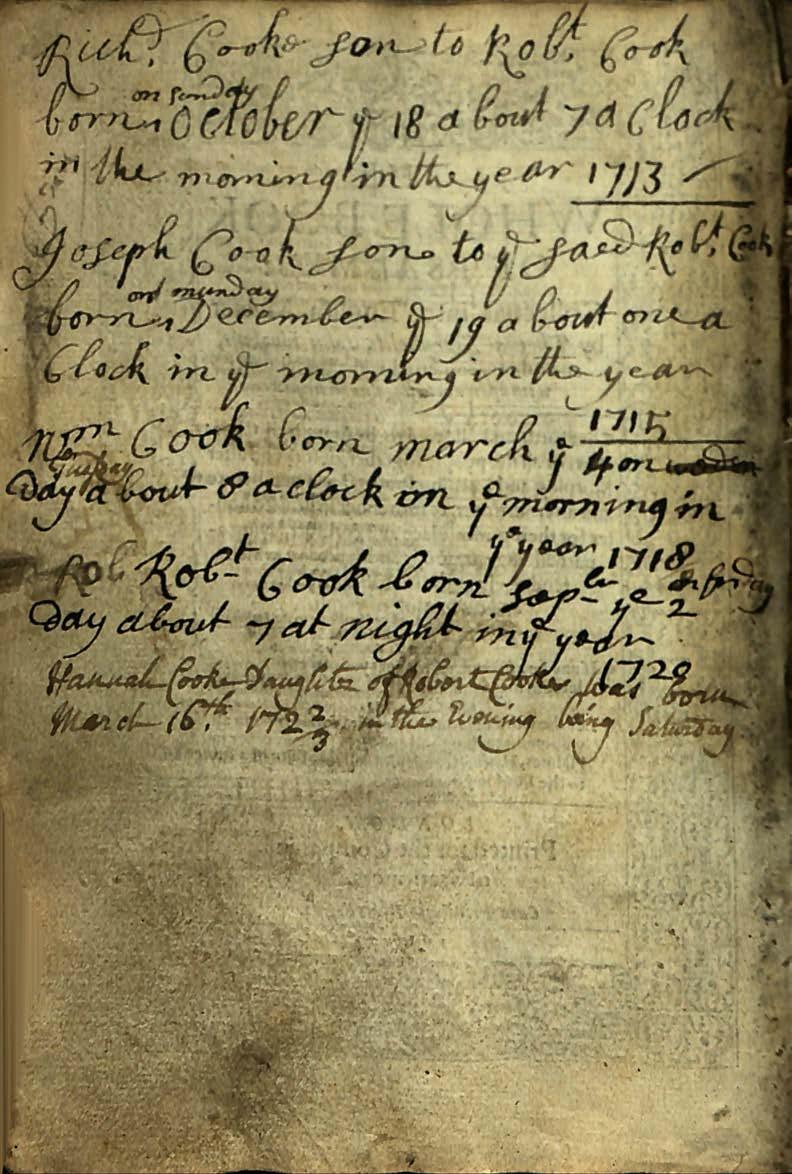 Rich.d Cooke son to Rob.t Cook
born on sunday October ye 18 about 7 a Clock
in the morning in the year 1713
Joseph Cook son to ye saed Rob.t Cook
born on munday December ye 19 about one a
Clock in ye morning in the year
1715
Wm Cook born march ye 4 on
Tusday
day about 8 a clock in ye morning in
ye year 1718
Rob Robt Cook born Sepbr ye 2
day about 7 at night in ye year
1720
Hannah Cooke Daughter of Robert Cooke was born
March 16.th 172 2/3 in the Evening being Saturday